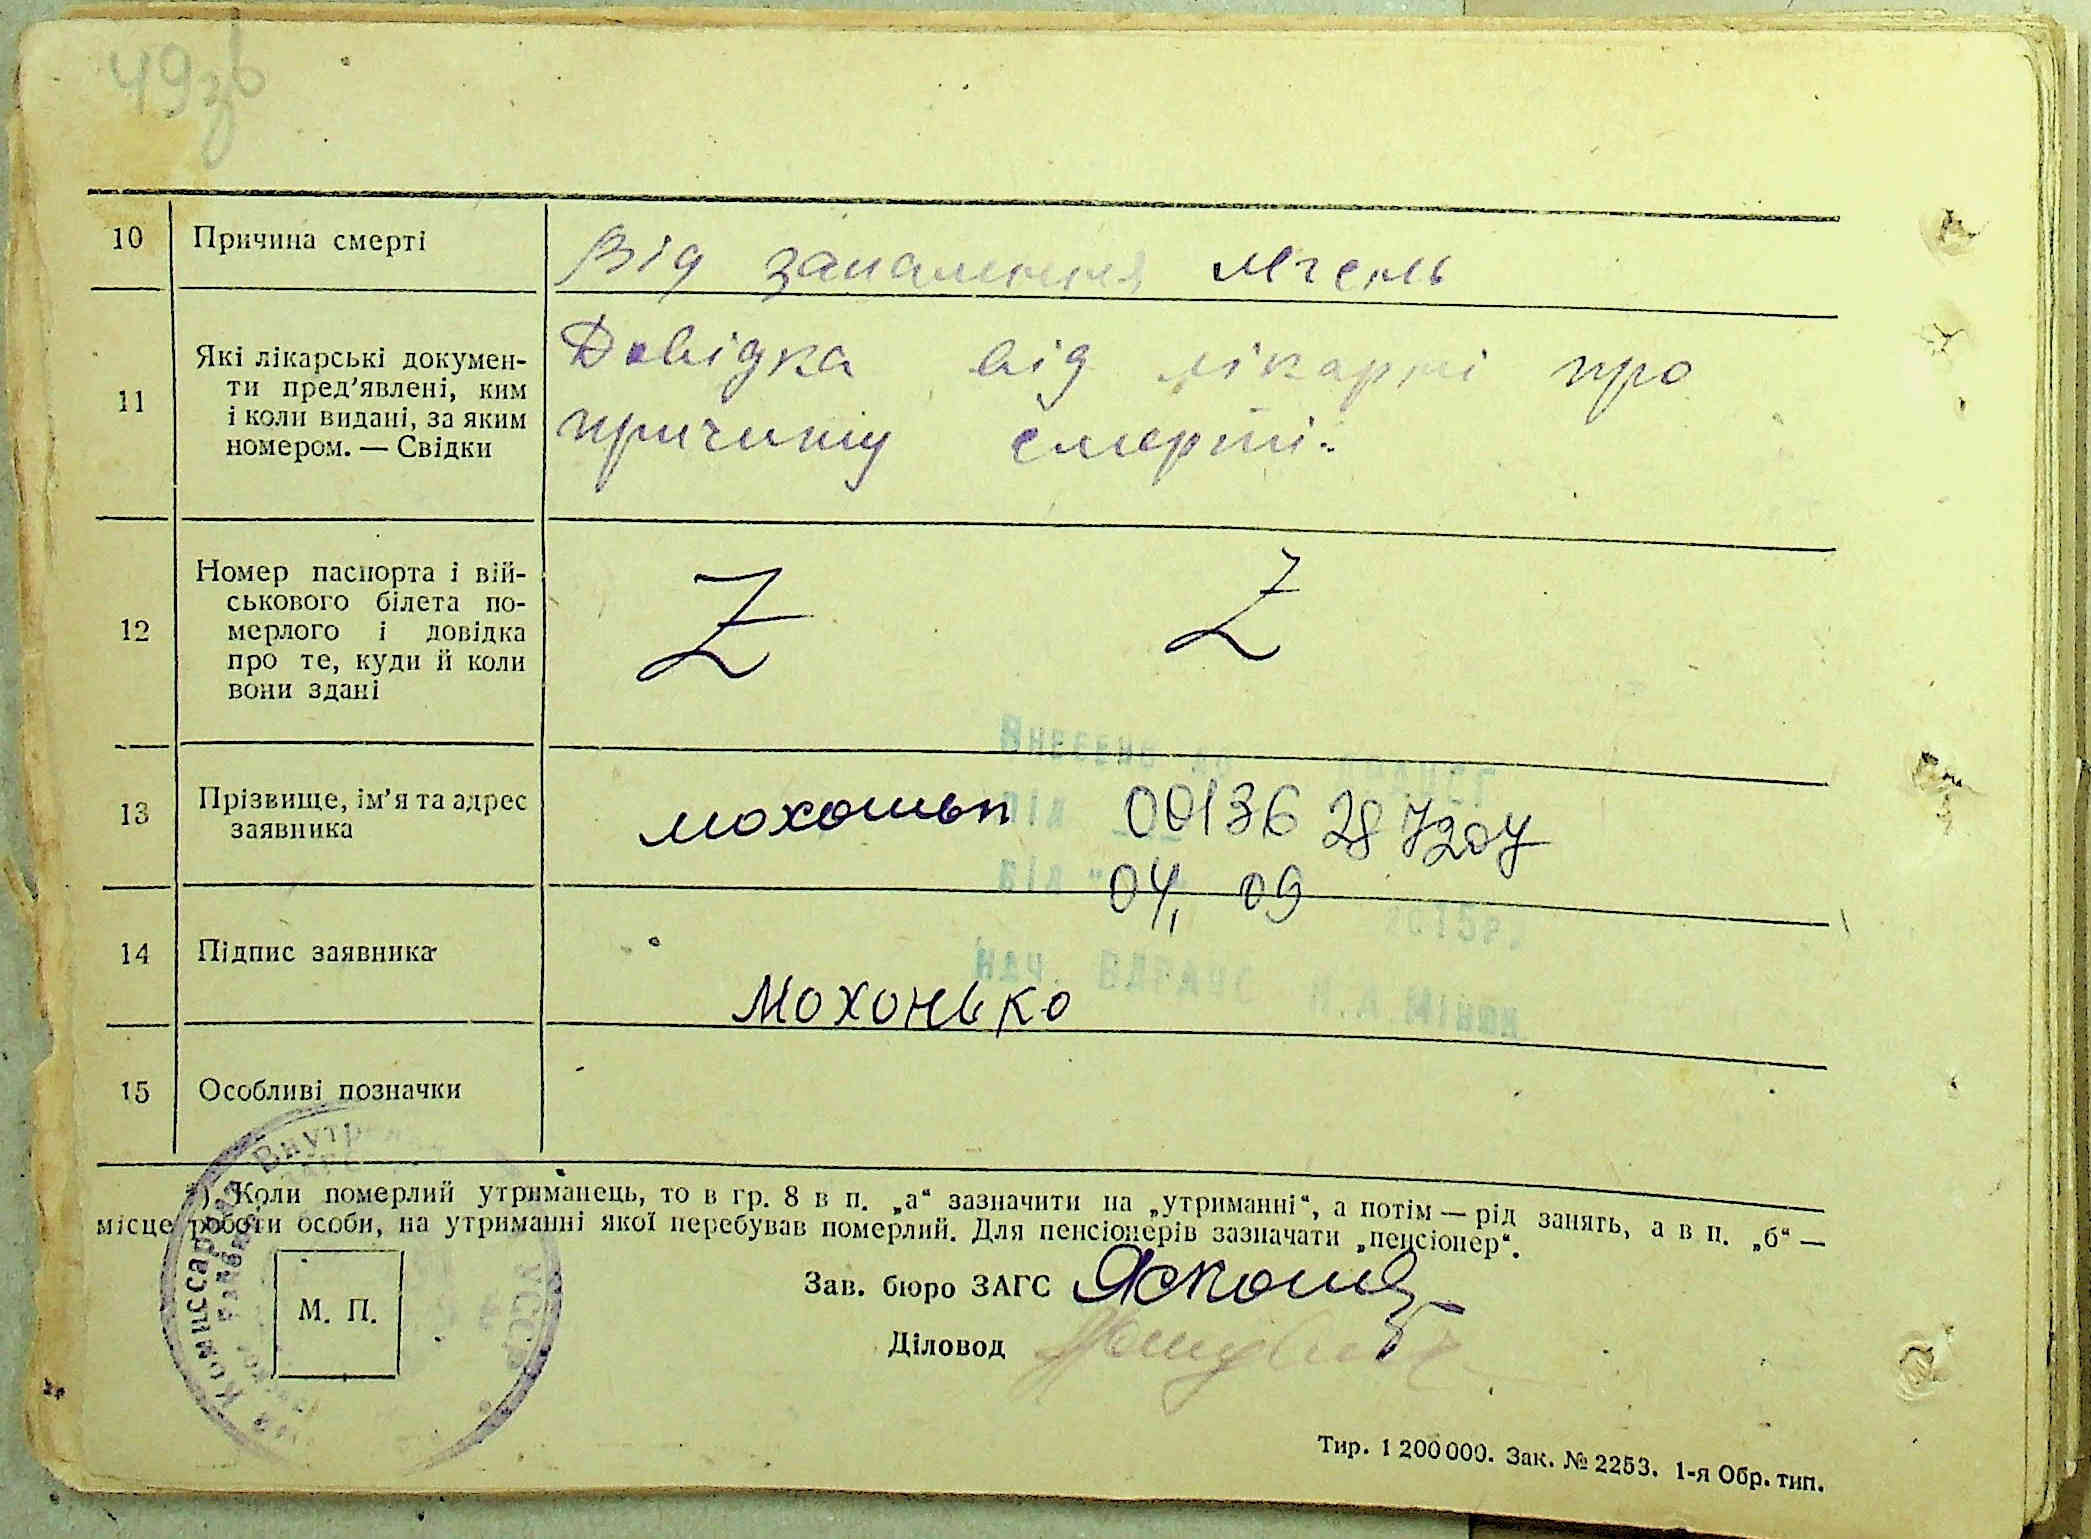 49зв
10 Причина смерті
Від запалення лгень
11 Які лікарські докумен-
ти пред'явлені, ким
і коли видані, за яким
номером. — Свідки
Довідка від лікарні про
причину смерті.
12 Номер паспорта і вій-
ськового білета по-
мерлого і довідка
про те, куди й коли
вони здані
Z Z
Внесено до ДРАЦСГ
13 Прізвище, ім'я та адрес
заявника
00136287207
від " 04, 09 2015р.
14 Підпис заявника
Нач. ВДРАЦС Н.А.
Мохонько
15 Особливі позначки
*) Коли померлий утриманець, то в гр. 8 в п. „а“ зазначити на „утриманні“, а потім — рід занять, а в п. „б“ —
місце роботи особи, на утриманні якої перебував померлий. Для пенсіонерів зазначати „пенсіонер“.
М. П.
Зав. бюро ЗАГС
Діловод
Комиссариат Внутр
УССР
Тир. 1 200 000. Зак. № 2253. 1-я Обр. тип.